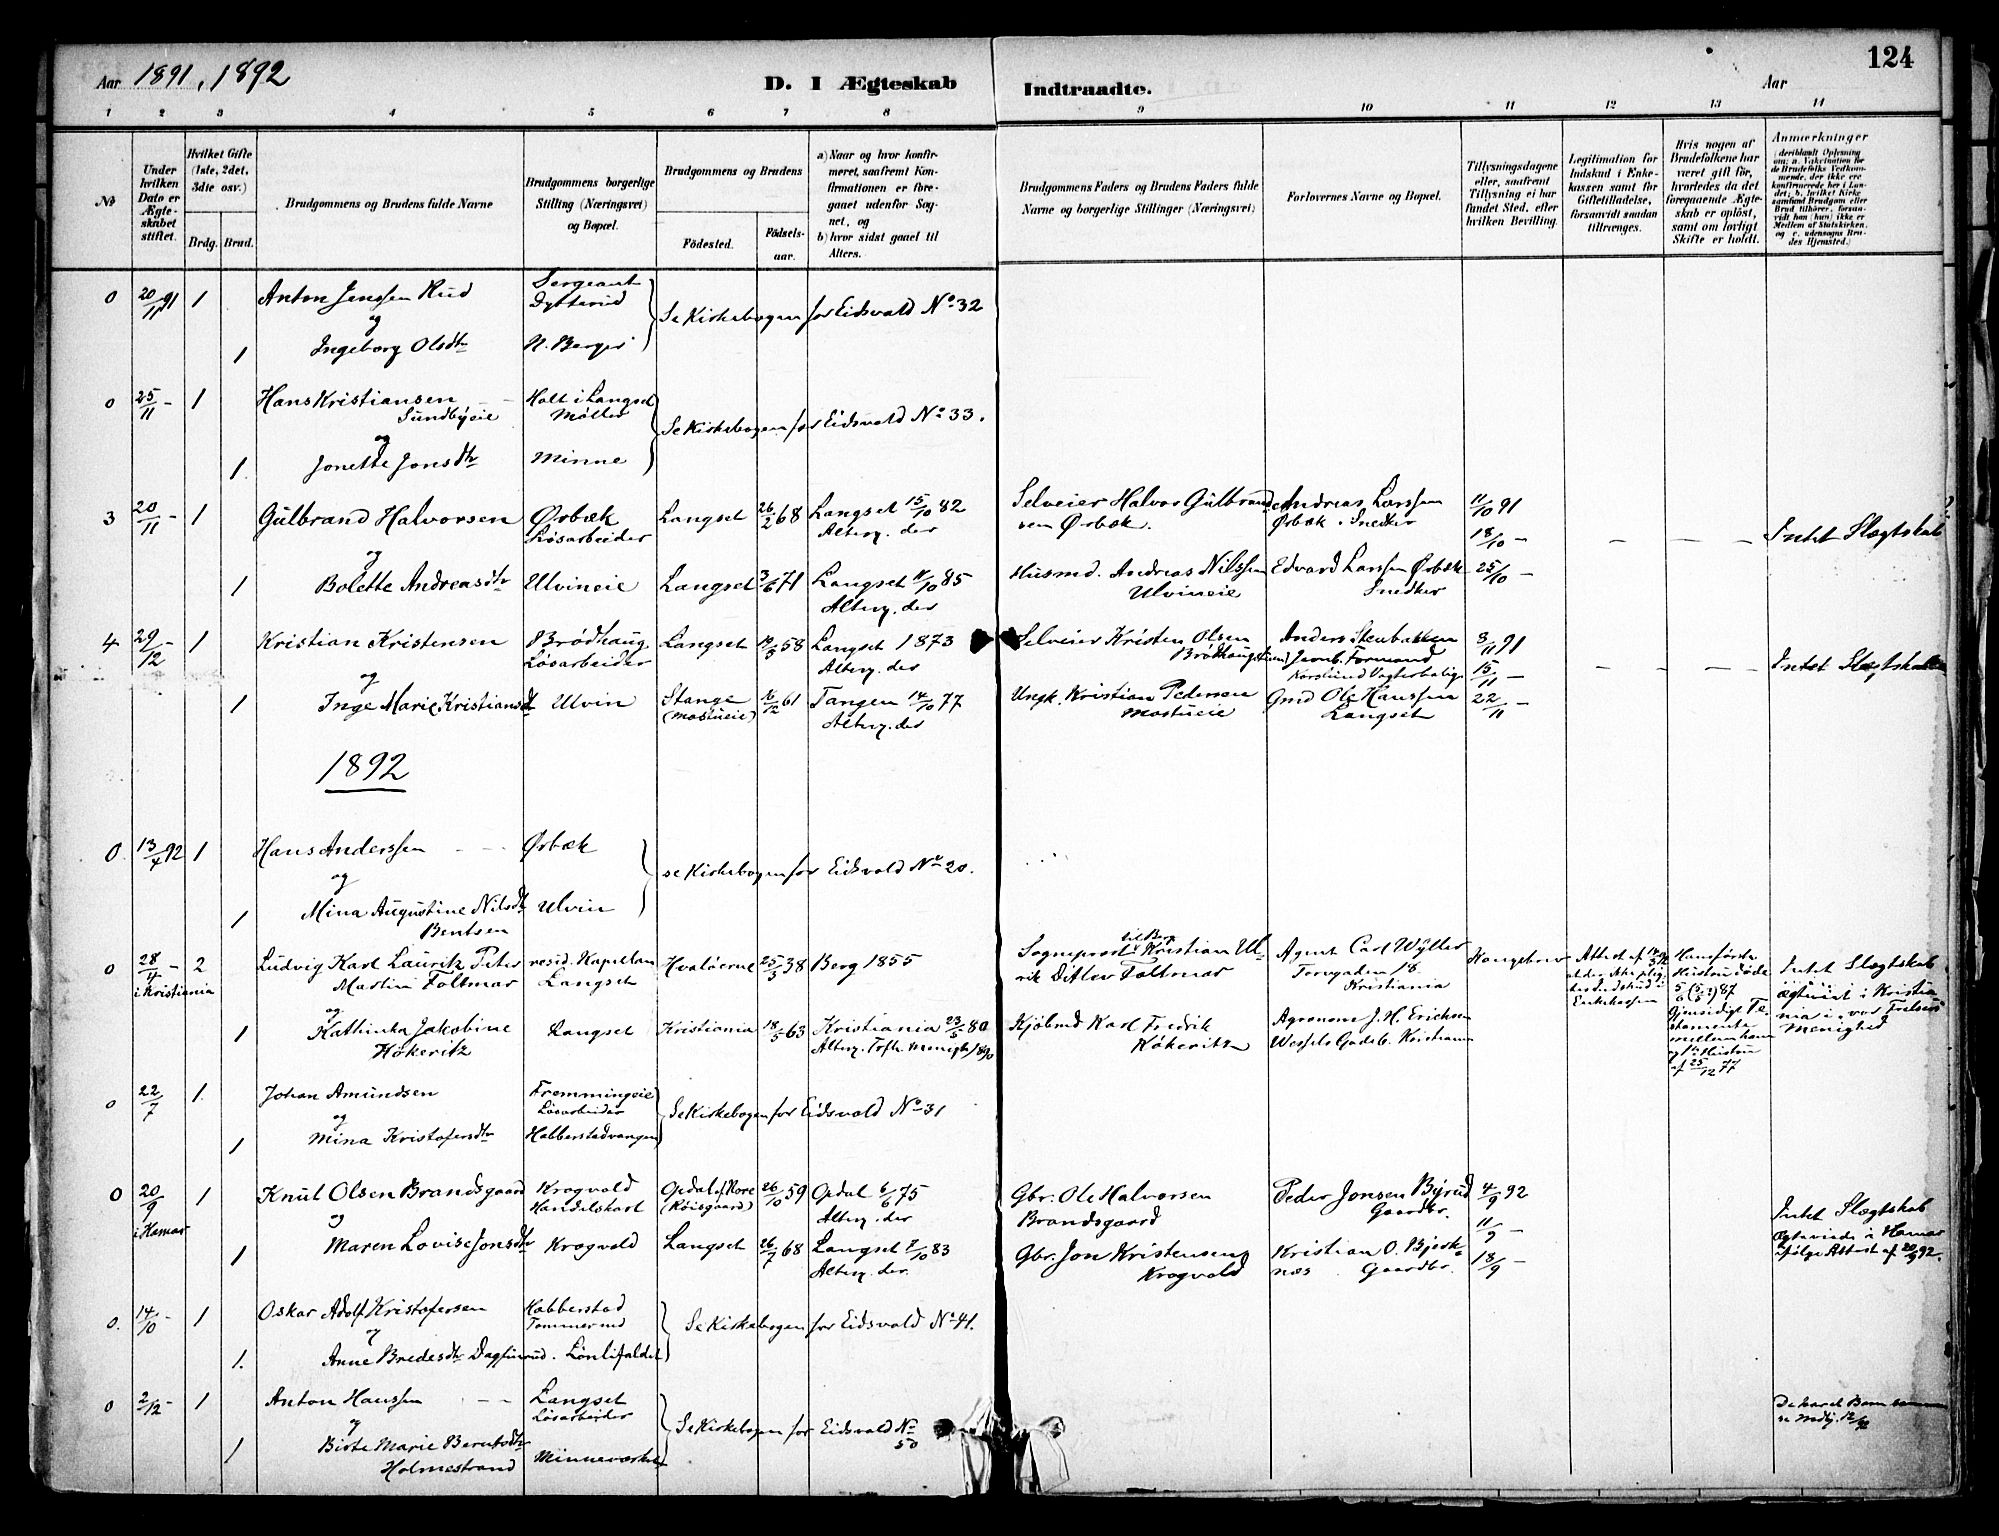 124
Aar 1891, 1892
D. I Ægteskab
Indtraadte.
Aar
1 2 3 4 5 6 7 8 9 10 11 12 13 14
№
Under hvilken Dato er Ægteskabet stiftet.
Hvilket Gifte (1ste, 2det, 3die osv.)
Brdg. Brud.
Brudgommens og Brudens fulde Navne
Brudgommens borgerlige Stilling (Næringsvei) og Bopæl.
Brudgommens og Brudens
Fødested.
Fødsels-aar.
a) Naar og hvor konfirmeret, saafremt Konfirmationen er foregaaet udenfor Sognet, og
b) hvor sidst gaaet til Alters.
Brudgommens Faders og Brudens Faders fulde Navne og borgerlige Stillinger (Næringsvei)
Forlovernes Navne og Bopæl.
Tillysningsdagene eller, saafremt Tillysning ei har fundet Sted, efter hvilken Bevilling.
Legitimation for Indskud i Enkekassen samt for Giftetilladelse, forsaavidt saadan tiltrænges.
Hvis nogen af Brudefolkene har været gift før, hvorledes da det foregaaende Ægteskab er opløst, samt om lovligt Skifte er holdt.
Anmærkninger
0 20/11 91 1 Anton Jenssen Rud Sergeant Dytterud
og
1 Ingeborg Olsdtr N. Berger
Se Kirkebogen for Eidsvold No 32
0 25/11 - 1 Hans Kristiansen Sundbyeie Holt i Langset Møller
og
1 Jonette Jonsdtr Minne
Se Kirkebogen for Eidsvold No 33.
3 20/11 - 1 Gulbrand Halvorsen Ørbæk Løsarbeider Langset 26/2 68 Langset 15/10 82 Alterg. der Selveier Halvor Gulbrandsen Ørbæk. Andreas Larssen Ørbæk. Snedker 11/10 91 18/10 - Intet Slægtskab
og
1 Bolette Andreasdtr Ulvineie Langset 3/6 71 Langset 11/10 85 Alterg. der Husmd. Andreas Nilssen Ulvineie Edvard Larssen Ørbæk Snedker 25/10 -
4 29/12 - 1 Kristian Kristensen Brødhaug Løsarbeider Langset 19/3 58 Langset 1873 Alterg. der Selveier Kristen Olsen Brødhaug Anders Stenbakken Jernb. Formand 8/11 91 15/11 - Intet Slægtskab
og
1 Inge Marie Kristiansdt Ulvin Stange (Mostueie) 16/12 61 Tangen 14/10 77 Alterg. der Ungk. Kristian Pedersen Mostueie Gmd Ole Hanssen Langset 22/11 -
1892
0 13/4 92 1 Hans Anderssen Ørbæk
og
1 Mina Augustine Nilsdtr Bentsen Ulvin
se Kirkebogen for Eidsvold No 20.
0 28/4 - i Kristiania 2 Ludvig Karl Lauritz Peter Martin Foltmar resid. Kapellan Langset Hvaløerne 25/3 38 Berg 1855 Sogneprest til Berg Kristian Ulrik Ditlev Foltmar Agent Carl Wyller Torvgaden 18 Kristiania Kongebrev
og
1 Kathinka Jakobine Hökeritz Langset Kristiania 18/5 63 Kristiania 23/5 80 Kjøbmd Karl Fredrik Hökeritz Agronom J. H. Erichsen Wessels Gade 6. Kristiania
Intet Slægtskab ægteviet i Kristiania i vor Frelsers Menighed
0 22/7 1 Johan Amundsen Fremmingeie Løsarbeider
og
1 Mina Kristofersdtr Habberstadvangen
Se Kirkebogen for Eidsvold No 31
0 20/9 i Hamar 1 Knut Olsen Brandsgaard Krogvold Handelskarl Opdal af Nore 26/10 59 Opdal 6/6 75 Alterg. der Gbr. Ole Halvorsen Brandsgaard Peder Jonsen Byrud Gaardbr. 4/9 92 11/9 -
og
1 Maren Lovise Jonsdtr Krogvold Langset 26/7 68 Langset 7/10 83 Alterg. der. Gbr. Jon Kristensen Krogvold Kristian O. Bjerknes Gaardbr. 18/9 -
Intet Slægtskab Ægteviede i Hamar ifølge Attest af 20/9 92.
0. 14/10 - 1 Oskar Adolf Kristofersen Habberstad Tømmermd
og
1. Anne Bredesdtr Dagfinrud. Lønlifaldet
Se Kirkebogen for Eidsvold No 41.
0 2/12 - 1 Anton Hanssen Langset Løsarbeider
og
1 Birte Marie Berntsdtr Holmestrand Minneværket
Se Kirkebogen for Eidsvold No 50
De har et Barn sammen